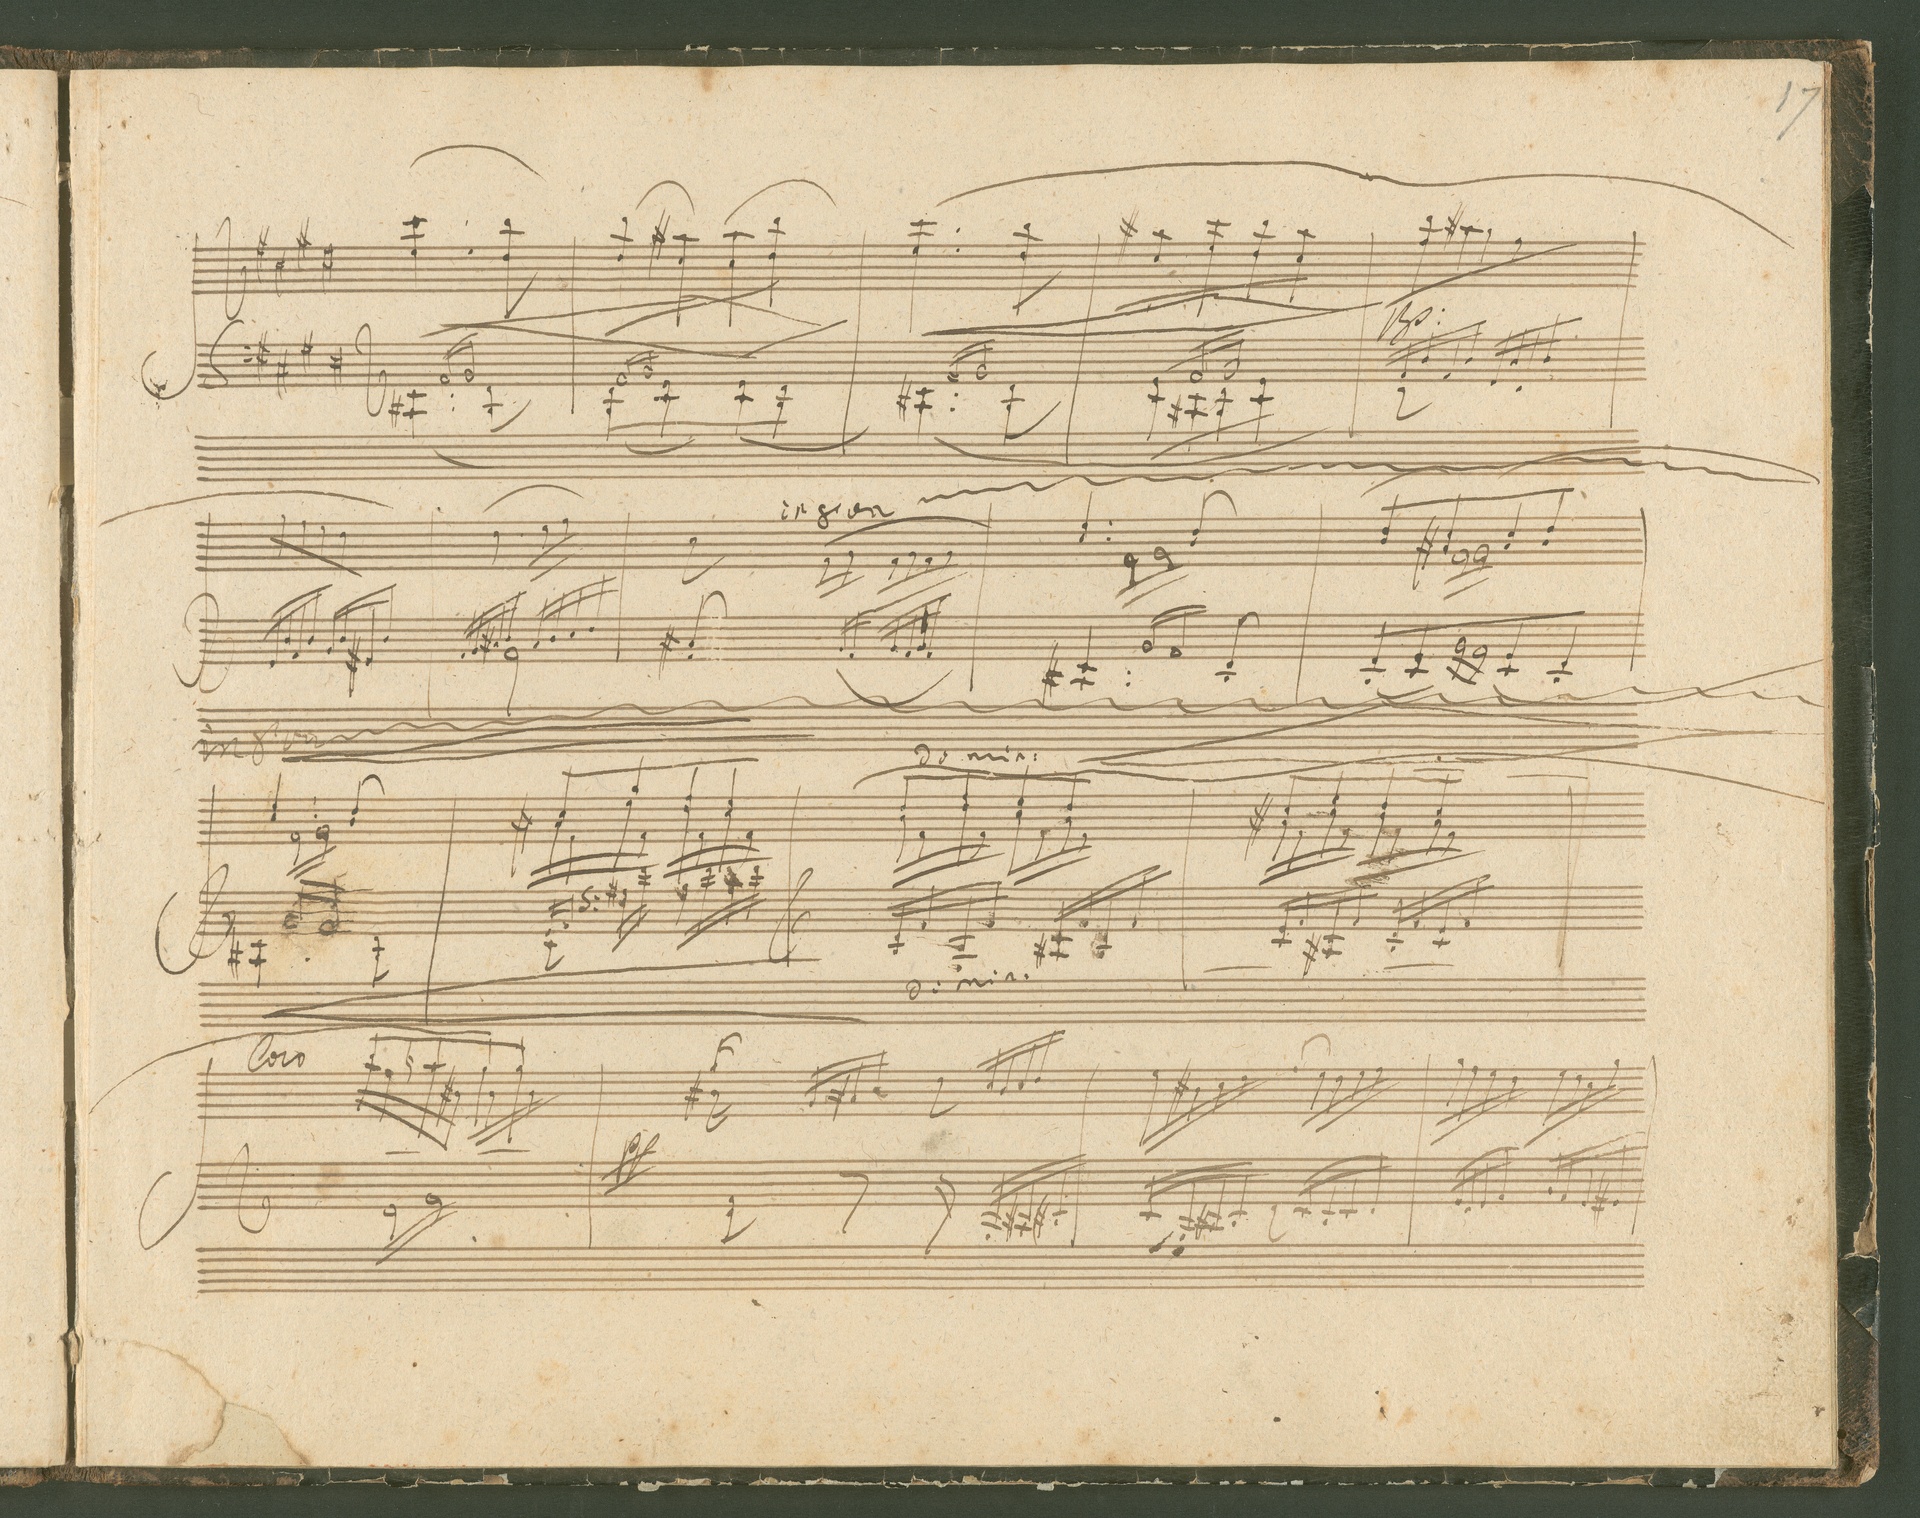 17
in 8va
in 8va
dimin:
dimin:
Loco
pp